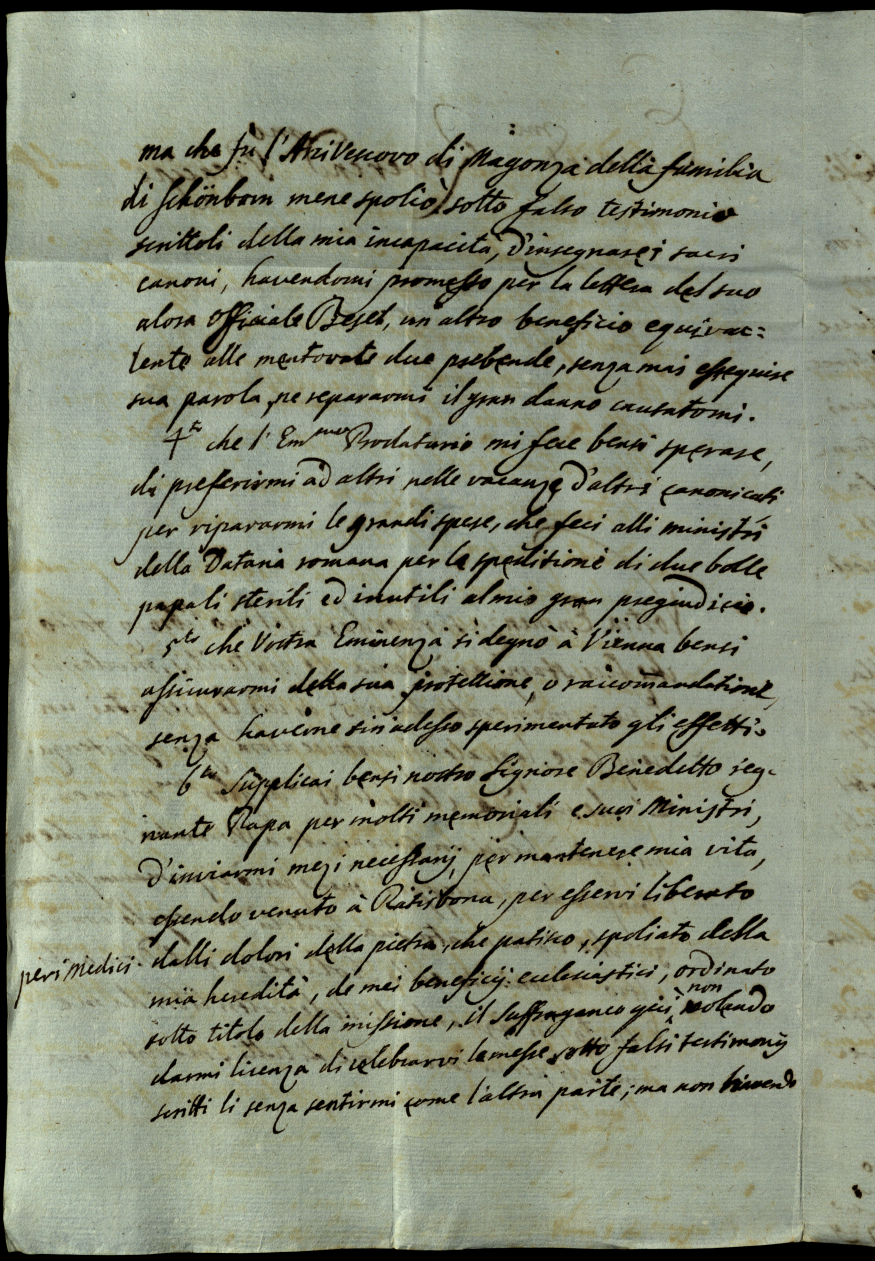 ma che fù l'Arcivescovo di Magonza della familia
di Schönborn mene spoliò, sotto falso testimonio
scrittoli della mia incapacità, d'insegnare i sacri
canoni, havendomi promesso per la lettera del suo
alora Officiale Bessel, un altro beneficio equiva=
lente alle mentovate due prebende, senza mai esseguire
sua parola, ne separarmi il gran danno causatomi.
4to che l'Emmo Prodatario mi fece bensi sperare,
di preferirmi ad altri nelle vacanze d'altri canonicati
per ripararmi le grandi spese, che feci alli ministri
della Dataria romana per la speditione di due bolle
papali sterili ed inutili al mio gran pregiudicio.
5to che Vostra Eminenza si degnò à Vienna bensi
assicurarmi della sua protettione, o raccomandatione,
senza haverne sin'adesso sperimentato gli effetti.
6to Supplicai bensi nostro Signore Benedetto reg-
nante Papa per molti memoriali e suoi Ministri,
d'inviarmi mezi necessarij, per mantenere mia vita,
essendo venuto à Ratisbona, per esservi liberato
per i Medici dalli dolori della pietra, che patisco, spoliato della
mia heredità, de mei beneficij ecclesiastici, ordinato
sotto titolo della missione, il Suffraganeo qui, non volendo
darmi licenza di celebrarvi le messe sotto falsi testimonij
scritti li senza sentirmi come l'altra parte; ma non havendo